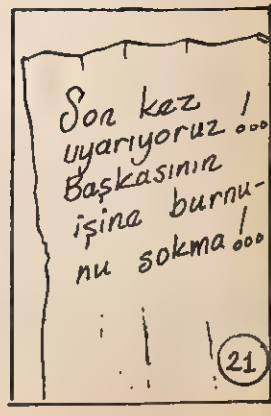 Son kez
uyarıyoruz!...
Başkasının
işine burnu-
nu sokma!...
21